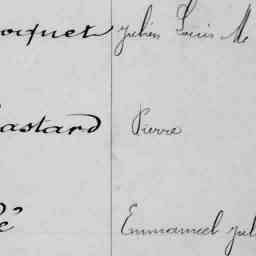 oquet Julien Louis M
astard Pierre
é Emmanuel Jul